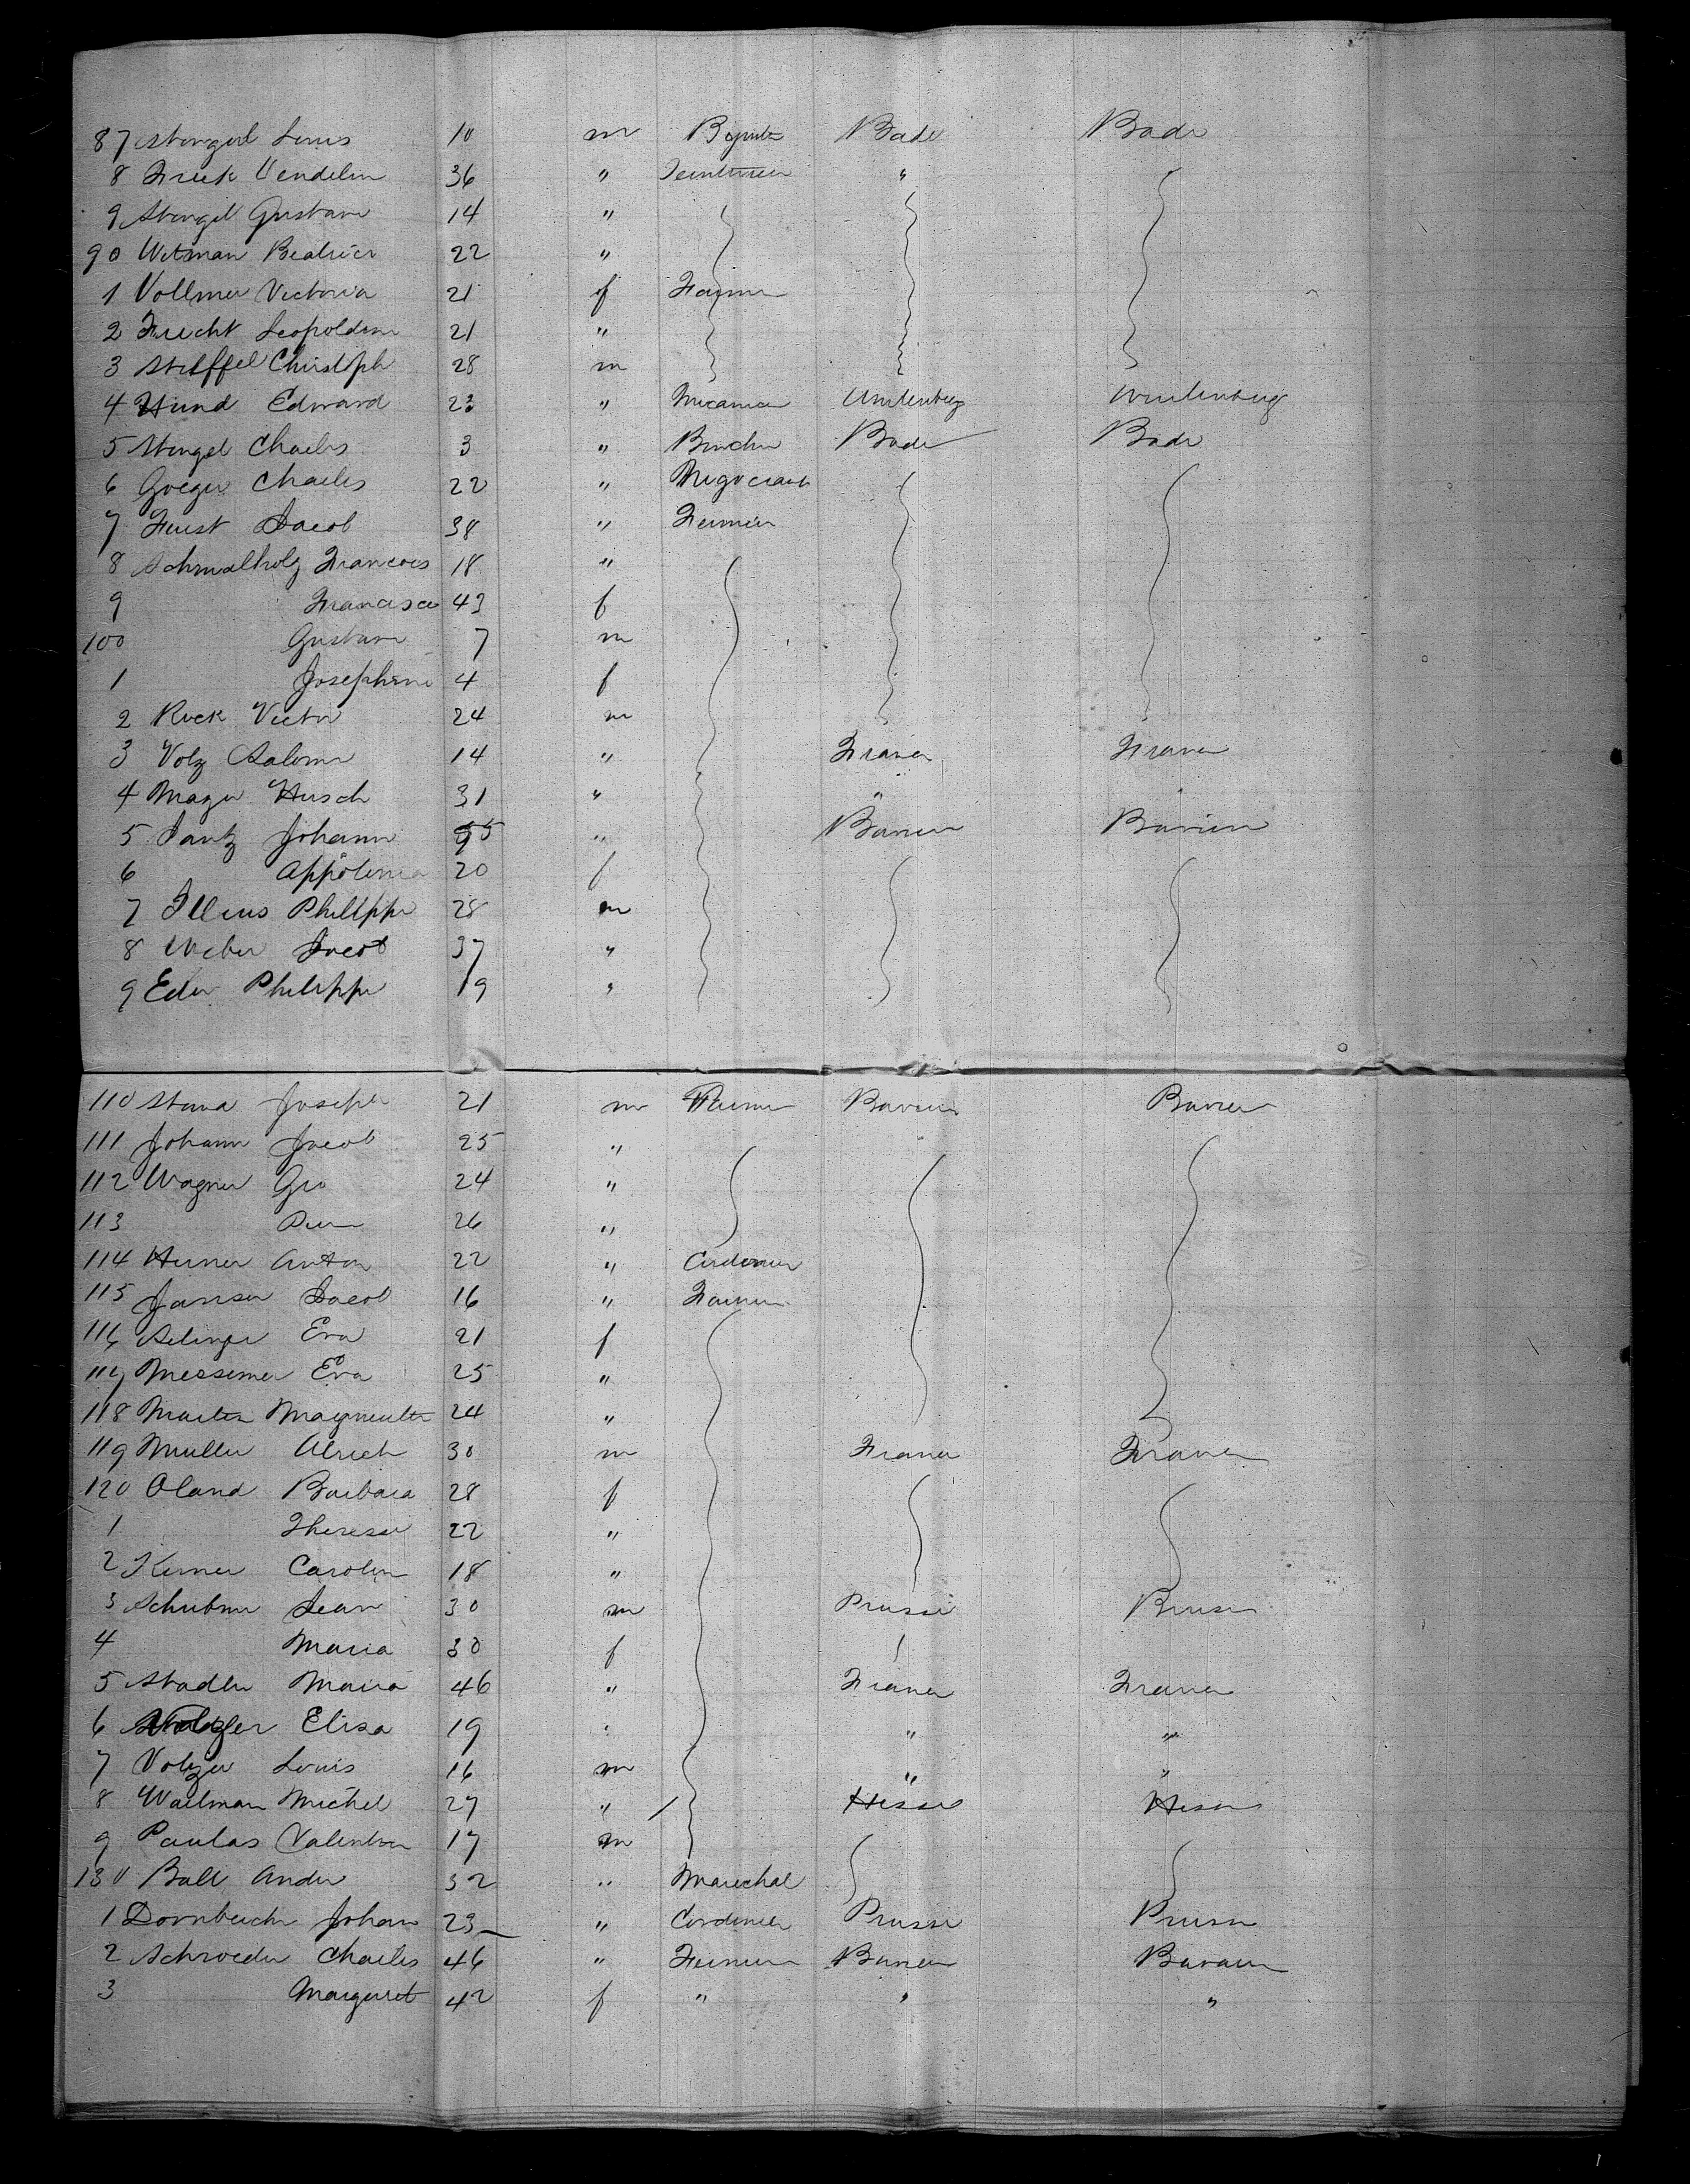 87 Stengel Louis 10 m Bade Bade
8 Frick Vendelin 36 " Teinturier "
9 Stengel Gustave 14 "
90 Witman Beatrice 22 "
1 Vollmer Victoria 21 f Farmer
2 Frecht Leopoldine 21 "
3 Steffel Christoph 28 m
4 Hund Edward 23 " Mecanicien Wurtenberg Wurtenberg
5 Stengel Charles 3 " Bade Bade
6 Goeger Charles 22 " Negociant
7 Furst Jacob 38 " Fermier
8 Schmalholz Francois 18 "
9 Francisca 43 f
100 Gustave 7 m
1 Josephine 4 f
2 Rock Victor 24 m
3 Volz Salome 14 " France France
4 Mager Hirsch 31 " " "
5 Jantz Johann 55 " Baviere Baviere
6 Appolonia 20 f
7 Philippe 28 m
8 Weber Jacob 37 "
9 Eder Philippe 19 "
110 Joseph 21 m Farmer Baviere Baviere
111 Johann Jacob 25 "
112 Wagner Geo 24 "
113 26 "
114 Anton 22 " Cordonnier
115 Jansen Jacob 16 " Farmer
116 Eva 21 f
117 Messemer Eva 25 "
118 Martin 24 "
119 Muller Ulrich 30 m France France
120 Oland Barbara 28 f
1 Therese 22 "
2 Kerner Caroline 18 "
3 Jean 30 m Prusse Prusse
4 Maria 30 f
5 Stadler Maria 46 " France France
6 Elisa 19 " " "
7 Volzer Louis 16 m " "
8 Wailman Michel 27 " Hesse Hesse
9 Paulas Valentin 17 m
130 Ball Andre 32 " Marechal
1 Dornbuch Johan 23 " Cordonnier Prusse Prusse
2 Schroeder Charles 46 " Fermier Baviere Baviere
3 Margaret 42 f " " "